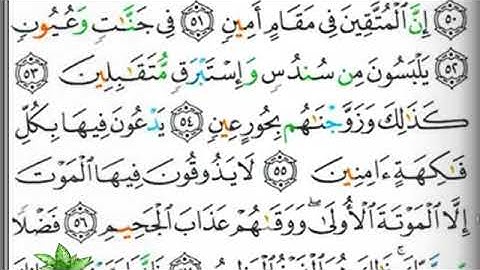 ٥٠ إِنَّ ٱلْمُتَّقِينَ فِى مَقَامٍ أَمِينٍ ٥١ فِى جَنَّـٰتٍ وَعُيُونٍ
٥٢ يَلْبَسُونَ مِن سُندُسٍ وَإِسْتَبْرَقٍ مُّتَقَـٰبِلِينَ ٥٣
كَذَٰلِكَ وَزَوَّجْنَـٰهُم بِحُورٍ عِينٍ ٥٤ يَدْعُونَ فِيهَا بِكُلِّ
فَـٰكِهَةٍ ءَامِنِينَ ٥٥ لَا يَذُوقُونَ فِيهَا ٱلْمَوْتَ
إِلَّا ٱلْمَوْتَةَ ٱلْأُولَىٰ ۖ وَوَقَىٰهُمْ عَذَابَ ٱلْجَحِيمِ ٥٦ فَضْلًا